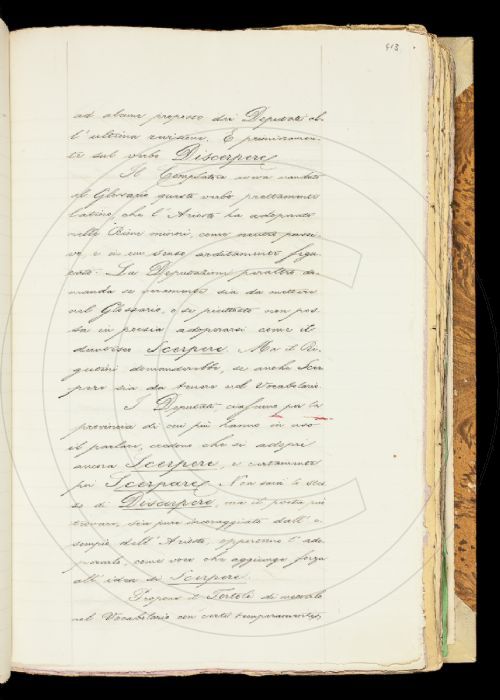 413
ad alcune proposte dai Deputati al-
l'ultima revisione. E primieramen-
te sul verbo Discerpere
Il Compilatore aveva mandato
al Glossario questo verbo prettamente
latino, che l'Ariosto ha adoperato
nelle Rime minori, come neutro passi-
vo, e in un senso arditamente figu-
rato. La Deputazione peraltro do-
manda se veramente sia da mettere
nel Glossario, o se piuttosto non pos-
sa in poesia adoperarsi come il
dantesco Scerpere. Ma il Ri-
gutini domanderebbe, se anche Scer
pere sia da tenere nel Vocabolario.
I Deputati, ciascuno per la
provincia di cui più hanno in uso
il parlare, credono che si adopri
ancora Scerpere, e certamente
poi Scerpare. Non sarà lo stes-
so di Discerpere, ma il poeta può
trovare, sia pure incoraggiato dall'e-
sempio dell'Ariosto, opportuno l'ado-
prarlo, come voce che aggiunge forza
all'idea di Scerpere.
Propone il Tortoli di metterlo
nel Vocabolario con certi temperamenti,